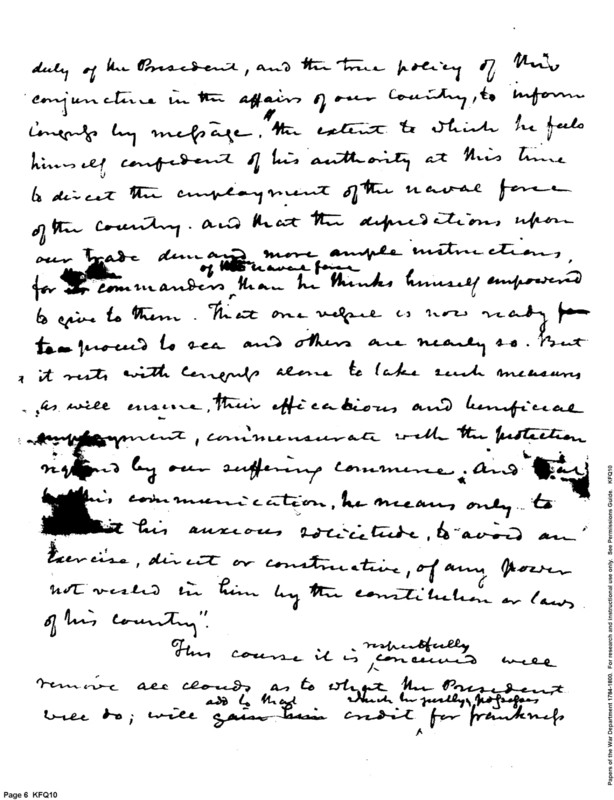 duty of the President, and the true policy of this
conjuncture in the affairs of our Country, to inform
Congress by message, "the extent to which he feels
himself confident of his authority at this time
to direct the employment of the naval force
of the country. and that the depredations upon
our trade demand more ample instructions,
of the naval force
for commanders than he thinks himself empowered
to give to them. That one vessel is now ready for
to proceed to sea and others are nearly so. But
it rests with Congress alone to take such measures
as will ensure, their efficacious and beneficial
employment, commensurate with the protection
required by our suffering commerce. And that
by this communication, he means only to
his anxious solicitude, to avoid an
exercise, direct or constructive, of any power
not vested in him by the constitution or laws
of his country".
respectfully
This course it is conceived will
remove all clouds as to what the President
add to that which he justly possesses
will do; will gain him credit for frankness
Page 6 KFQ10
Papers of the War Department 1784-1800. For research and instructional use only. See Permissions Guide. KFQ10